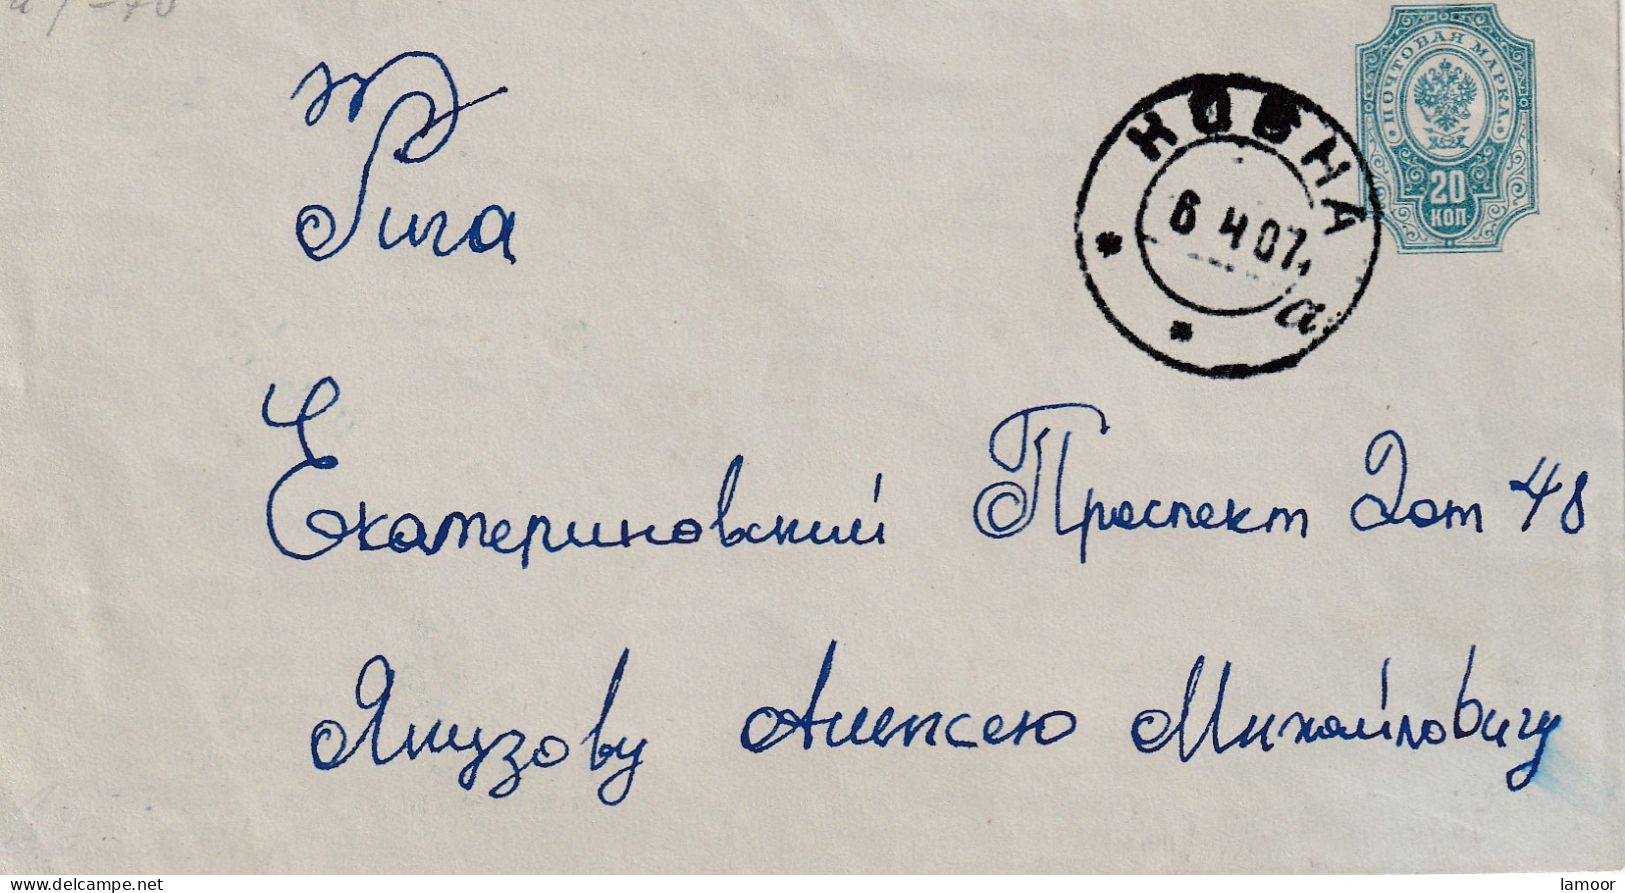 ПОЧТОВАЯ МАРКА.
20
КОП.
КОВНА
6 4 07.
а
Рига
Екатериновский Проспект Дом 48
Якузову Алексею Михайловичу
lamoor